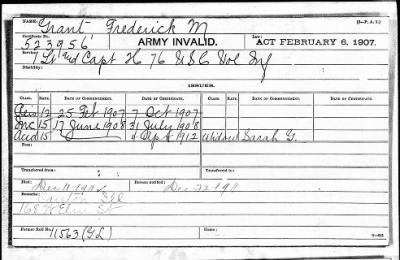 NAME: Grant Frederick M (3-P. A. I.)
Certificate No. 523956 ARMY INVALID. Law: ACT FEBRUARY 6, 1907.
Service: 1 Lt and Capt 76 U S C Vol Inf
Disability:
ISSUES.
CLASS. RATE. DATE OF COMMENCEMENT. DATE OF CERTIFICATE. CLASS. RATE. DATE OF COMMENCEMENT. DATE OF CERTIFICATE.
12 25 Feb 1907 7 Oct 1907
Inc 15 17 June 1908 31 July 1908
15 Sept 1912 Widow Sarah G.
Transferred from: Transferred to:
Died: Bureau notified: Dec 22
Remarks:
168
Former Roll No. Home
11563